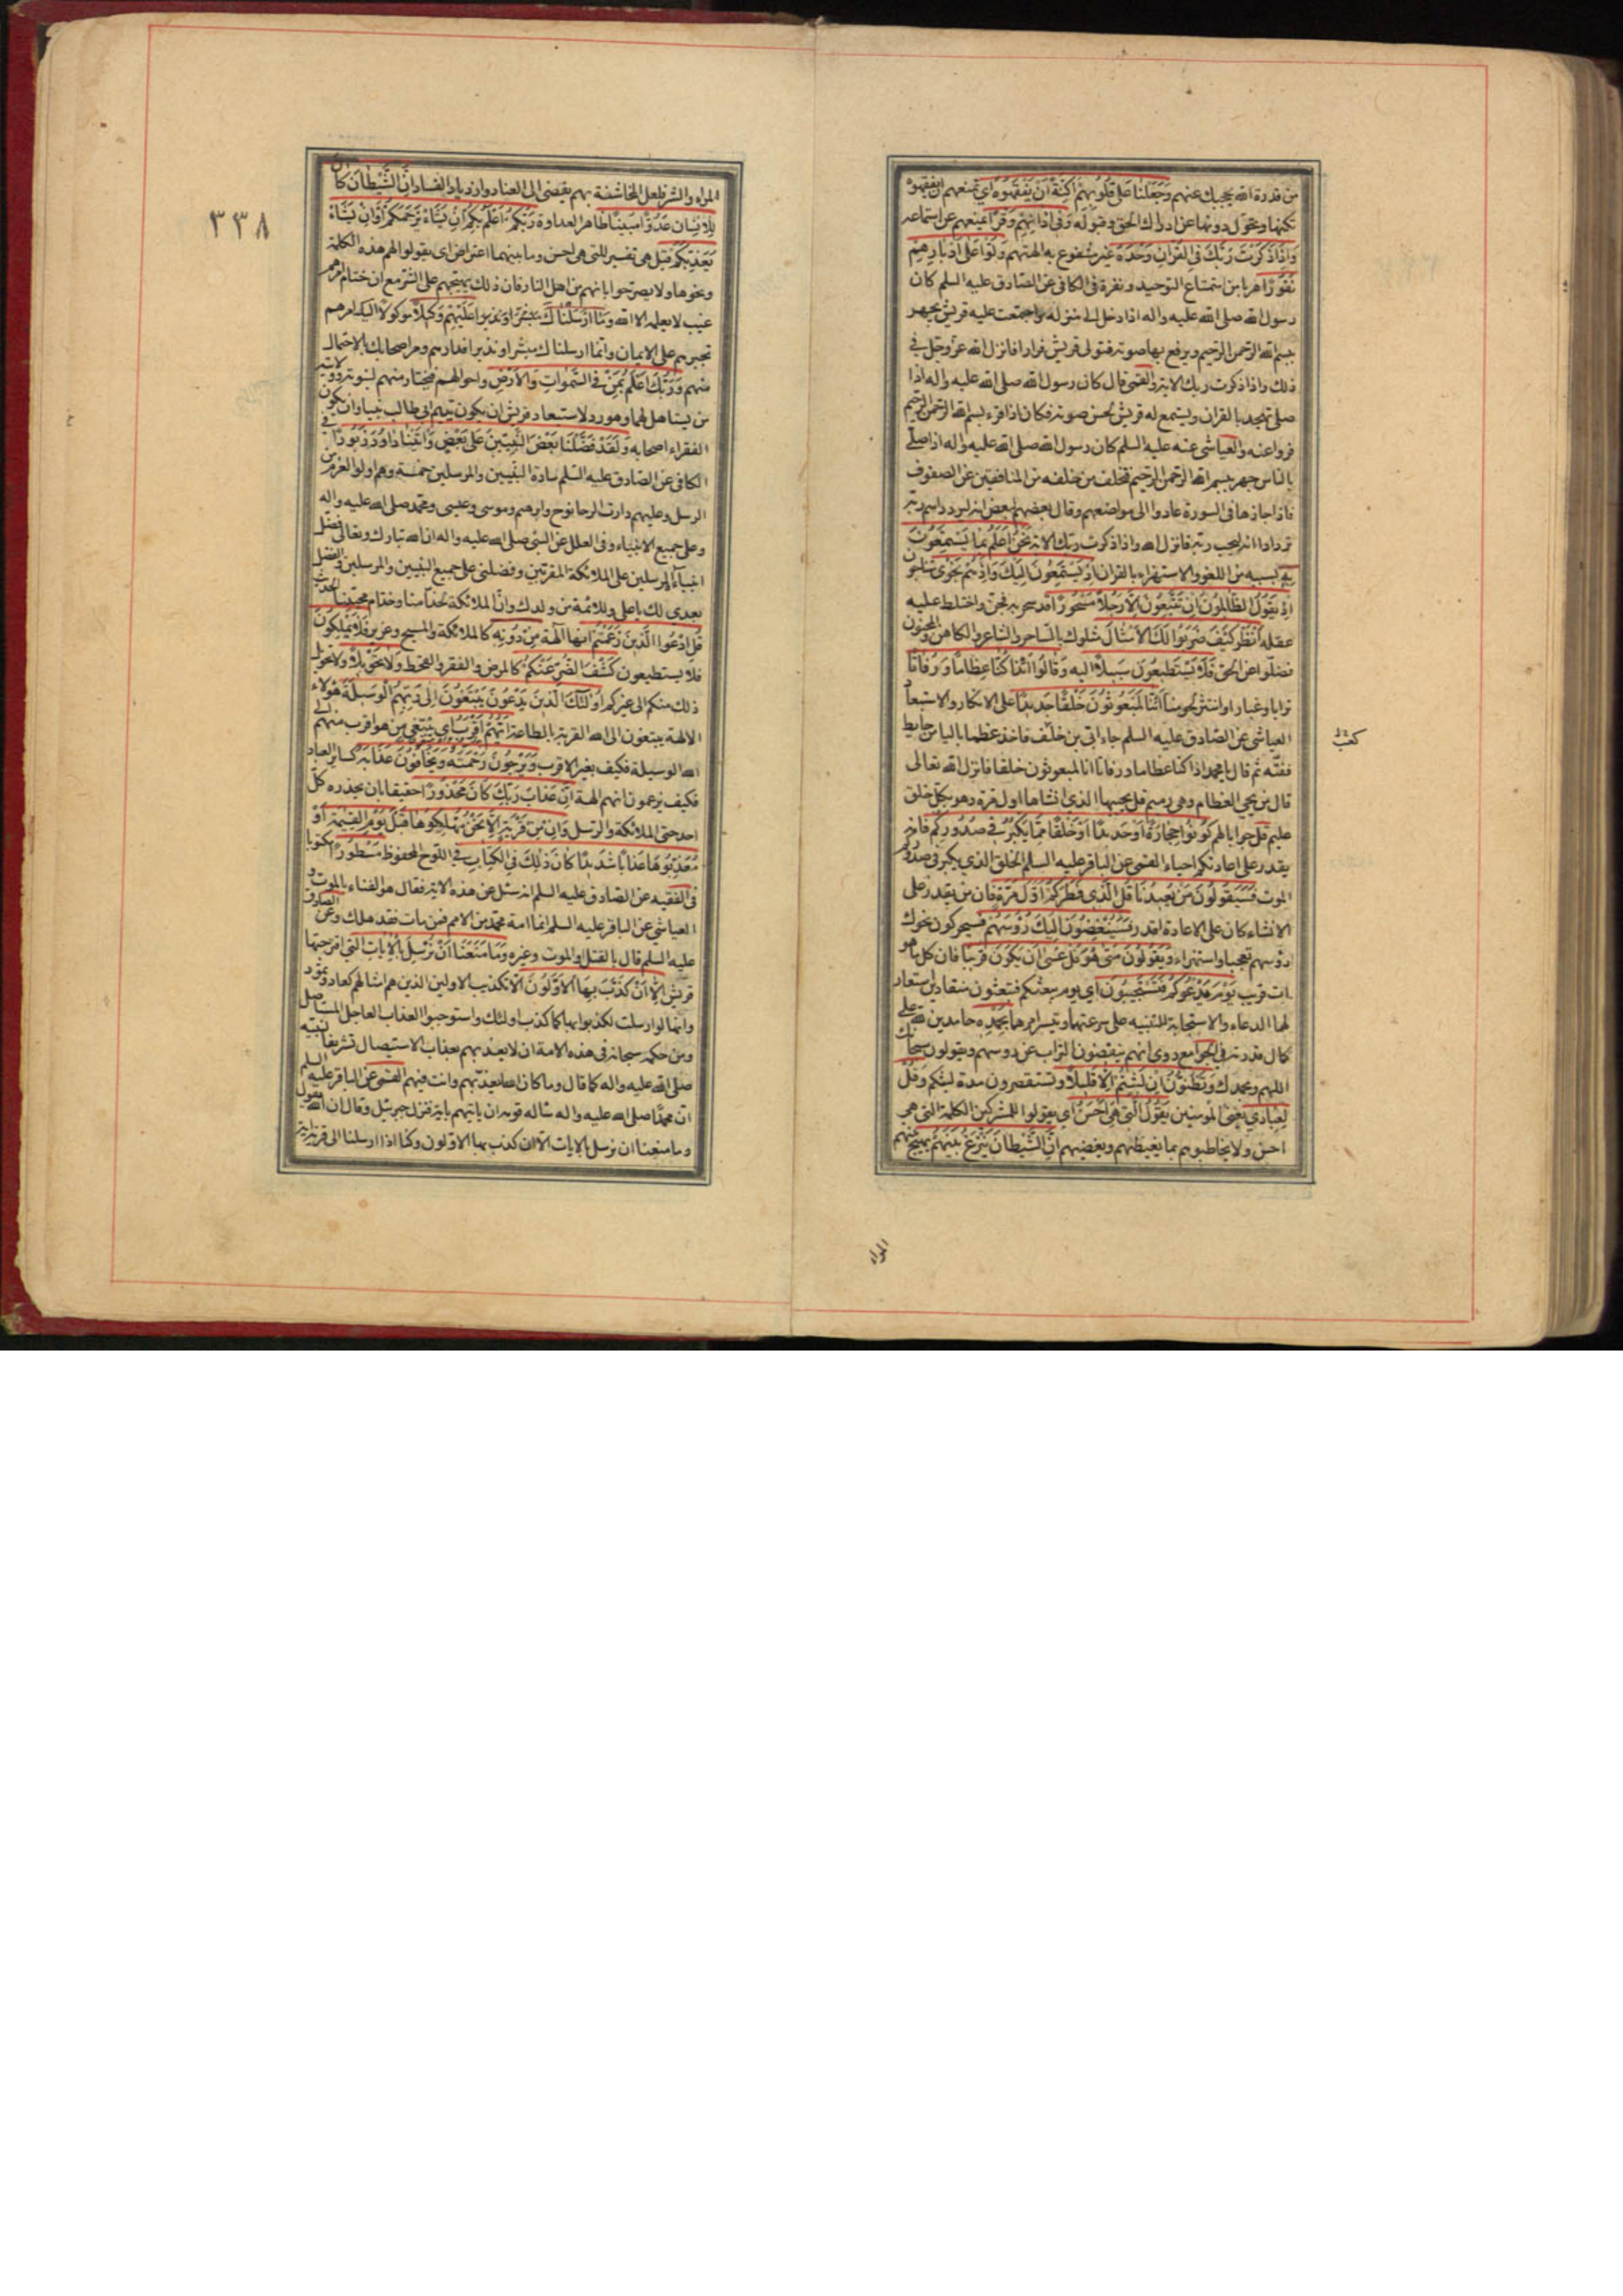 من قدرة الله يحجبك عنهم وَجَعَلْنَا عَلَى قُلُوبِهِمْ أَكِنَّةً أَنْ يَفْقَهُوهُ اي تمنعهم ان يفقهوه
تكنها وتحول دونها عن ادراك الحق وقبوله وَفِي آذَانِهِمْ وَقْرًا يمنعهم عن استماعه
وَإِذَا ذَكَرْتَ رَبَّكَ فِي الْقُرْآنِ وَحْدَهُ غير مشفوع به الهتهم وَلَّوْا عَلَى أَدْبَارِهِمْ
نُفُورًا هربا من استماع التوحيد ونفرة في الكافي عن الصادق عليه السلم كان
رسول الله صلى الله عليه واله اذا دخل الى منزله واجتمعت عليه قريش يجهر
ببسم الله الرحمن الرحيم ويرفع بها صوته فتولى قريش فرارا فانزل الله عز وجل في
ذلك واذا ذكرت ربك الاية القمى قال كان رسول الله صلى الله عليه واله اذا
صلى تهجد بالقران ويستمع له قريش لحسن صوته فكان اذا قرء بسم الله الرحمن الرحيم
فروا عنه والعياشى عنه عليه السلم كان رسول الله صلى الله عليه واله اذا صلى
بالناس جهر ببسم الله الرحمن الرحيم فتخلف من خلفه من المنافقين عن الصفوف
فاذا جازها في السورة عادوا الى مواضعهم وقال بعضهم لبعض انه ليردد اسم ربه
تردادا انه ليحب ربه فانزل الله واذا ذكرت ربك الاية نَحْنُ أَعْلَمُ بِمَا يَسْتَمِعُونَ
بِهِ بسببه من اللغو والاستهزاء بالقران إِذْ يَسْتَمِعُونَ إِلَيْكَ وَإِذْ هُمْ نَجْوَى متناجون
إِذْ يَقُولُ الظَّالِمُونَ إِنْ تَتَّبِعُونَ إِلَّا رَجُلًا مَسْحُورًا قد سحر به فجن واختلط عليه
عقله انْظُرْ كَيْفَ ضَرَبُوا لَكَ الْأَمْثَالَ مثلوك بالساحر والشاعر والكاهن والمجنون
فَضَلُّوا عن الحق فَلَا يَسْتَطِيعُونَ سَبِيلًا اليه وَقَالُوا أَئِذَا كُنَّا عِظَامًا وَرُفَاتًا
ترابا وغبارا وانتثر لحومنا أَئِنَّا لَمَبْعُوثُونَ خَلْقًا جَدِيدًا على الانكار والاستبعاد
العياشى عن الصادق عليه السلم جاء ابي بن خلف فاخذ عظما باليا من حايط
ففته ثم قال يا محمد اذا كنا عظاما ورفاتا ائنا لمبعوثون خلقا فانزل الله تعالى
قال من يحي العظام وهي رميم قل يحييها الذى انشاها اول مرة وهو بكل خلق
عليم قُلْ جوابا لهم كُونُوا حِجَارَةً أَوْ حَدِيدًا أَوْ خَلْقًا مِمَّا يَكْبُرُ فِي صُدُورِكُمْ فانه
يقدر على اعادتكم احياء القمى عن الباقر عليه السلم الخلق الذي يكبر في صدوركم
الموت فَسَيَقُولُونَ مَنْ يُعِيدُنَا قُلِ الَّذِي فَطَرَكُمْ أَوَّلَ مَرَّةٍ فان من يقدر على
الانشاء كان على الاعادة اقدر فَسَيُنْغِضُونَ إِلَيْكَ رُؤُسَهُمْ فسيحركون نحوك
رؤسهم تعجبا واستهزاء وَيَقُولُونَ مَتَى هُوَ قُلْ عَسَى أَنْ يَكُونَ قَرِيبًا فان كل ما هو
ات قريب يَوْمَ يَدْعُوكُمْ فَتَسْتَجِيبُونَ اي يوم يبعثكم فتبعثون منقادين استعار
لهما الدعاء والاستجابة للتنبيه على سرعتهما وتيسر امرهما بِحَمْدِهِ حامدين لله على
كمال قدرته في الجوامع روى انهم ينفضون التراب عن رؤسهم ويقولون سبحانك
اللهم وبحمدك وَتَظُنُّونَ إِنْ لَبِثْتُمْ إِلَّا قَلِيلًا وتستقصرون مدة لبثكم وَقُلْ
لِعِبَادِي يعنى المؤمنين يَقُولُوا الَّتِي هِيَ أَحْسَنُ اي يقولوا للمشركين الكلمة التي هي
احسن ولا يخاطبوهم بما يغيظهم ويغضبهم إِنَّ الشَّيْطَانَ يَنْزَغُ بَيْنَهُمْ يهيج بينهم
المراء
٣٣٨
المراء والشر فلعل المخاشنة بهم يفضى الى العناد وازدياد الفساد إِنَّ الشَّيْطَانَ كَانَ
لِلْإِنْسَانِ عَدُوًّا مُبِينًا ظاهر العداوة رَبُّكُمْ أَعْلَمُ بِكُمْ إِنْ يَشَأْ يَرْحَمْكُمْ أَوْ إِنْ يَشَأْ
يُعَذِّبْكُمْ قيل هي تفسير للتى هي احسن وما بينهما اعتراض اى يقولوا لهم هذه الكلمة
ونحوها ولا يصرحوا بانهم من اهل النار فان ذلك يهيجهم على الشر مع ان ختام امرهم
غيب لا يعلمه الا الله وَمَا أَرْسَلْنَاكَ عَلَيْهِمْ وَكِيلًا موكولا اليك امرهم
تجبرهم على الايمان وانما ارسلناك مبشرا ونذيرا فدارهم ومر اصحابك بالاحتمال
منهم وَرَبُّكَ أَعْلَمُ بِمَنْ فِي السَّمَوَاتِ وَالْأَرْضِ واحوالهم فيختار منهم لنبوته وولايته
من يستاهل لهما وهو رد لاستبعاد قريش ان يكون يتيم ابى طالب نبيا وان يكون
الفقراء اصحابه وَلَقَدْ فَضَّلْنَا بَعْضَ النَّبِيِّينَ عَلَى بَعْضٍ وَآتَيْنَا دَاوُدَ زَبُورًا في
الكافي عن الصادق عليه السلم سادة النبيين والمرسلين خمسة وهم اولوا العزم من
الرسل وعليهم دارت الرحا نوح وابرهيم وموسى وعيسى ومحمد صلى الله عليه واله
وعلى جميع الانبياء وفي العلل عن النبي صلى الله عليه واله ان الله تبارك وتعالى فضل
انبياءه المرسلين على الملائكة المقربين وفضلنى على جميع النبيين والمرسلين والفضل
بعدي لك يا على وللائمة من ولدك وان الملائكة لخدامنا وخدام محبينا الحديث
قُلِ ادْعُوا الَّذِينَ زَعَمْتُمْ انها آلهة مِنْ دُونِهِ كالملائكة والمسيح وعزير فَلَا يَمْلِكُونَ
فلا يستطيعون كَشْفَ الضُّرِّ عَنْكُمْ كالمرض والفقر والقحط وَلَا تَحْوِيلًا ولا تحويل
ذلك منكم الى غيركم أُولَئِكَ الَّذِينَ يَدْعُونَ يَبْتَغُونَ إِلَى رَبِّهِمُ الْوَسِيلَةَ هؤلاء
الالهة يبتغون الى الله القربة بالطاعة أَيُّهُمْ أَقْرَبُ اي يبتغى من هو اقرب منهم الى
الله الوسيلة فكيف بغير الاقرب وَيَرْجُونَ رَحْمَتَهُ وَيَخَافُونَ عَذَابَهُ كساير العباد
فكيف يزعمون انهم الهة إِنَّ عَذَابَ رَبِّكَ كَانَ مَحْذُورًا حقيقا بان يحذره كل
احد حتى الملائكة والرسل وَإِنْ مِنْ قَرْيَةٍ إِلَّا نَحْنُ مُهْلِكُوهَا قَبْلَ يَوْمِ الْقِيمَةِ أَوْ
مُعَذِّبُوهَا عَذَابًا شَدِيدًا كَانَ ذَلِكَ فِي الْكِتَابِ في اللوح المحفوظ مَسْطُورًا مكتوبا
في الفقيه عن الصادق عليه السلم انه سئل عن هذه الاية فقال هو الفناء بالموت و
العياشي عن الباقر عليه السلم انما امة محمد من الامم فمن مات فقد هلك وعن الصادق
عليه السلم قال بالقتل والموت وغيره وَمَا مَنَعَنَا أَنْ نُرْسِلَ بِالْآيَاتِ التي اقترحتها
قريش إِلَّا أَنْ كَذَّبَ بِهَا الْأَوَّلُونَ الا تكذيب الاولين الذين هم امثالهم كعاد وثمود
وانها لو ارسلت لكذبوا بها كما كذب اولئك واستوجبوا العذاب العاجل المستاصل
ومن حكمه سبحانه في هذه الامة ان لا يعذبهم بعذاب الاستيصال تشريفا لنبيه
صلى الله عليه واله كما قال وما كان الله ليعذبهم وانت فيهم القمى عن الباقر عليه السلم
ان محمدا صلى الله عليه واله ساله قومه ان ياتيهم باية فنزل جبرئيل وقال ان الله يقول
وما منعنا ان نرسل بالايات الا ان كذب بها الاولون وكنا اذا ارسلنا الى قرية اية